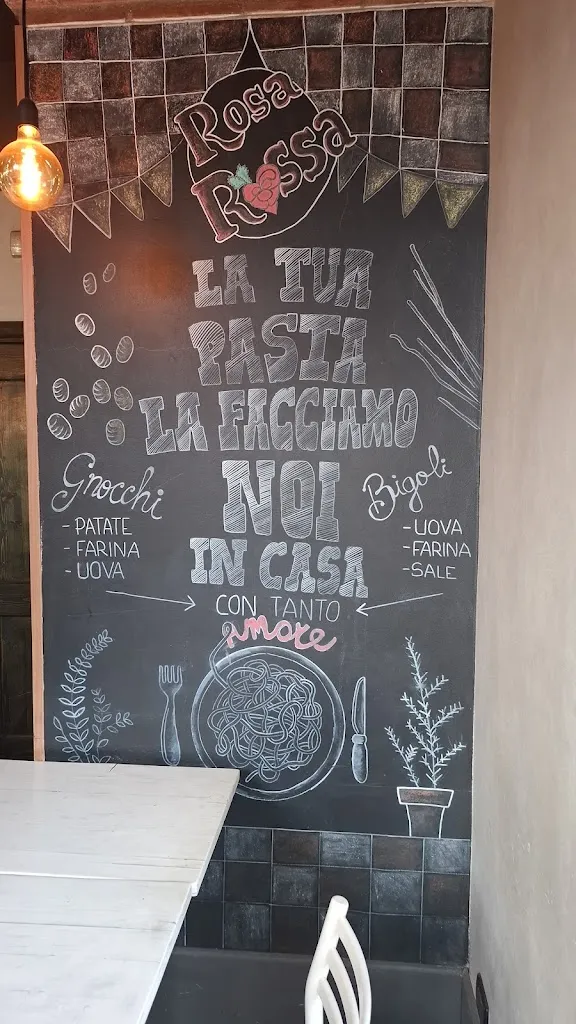 Rosa
Rossa
LA TUA
PASTA
LA FACCIAMO
NOI
IN CASA
CON TANTO
amore
Gnocchi
- PATATE
- FARINA
- UOVA
Bigoli
- UOVA
- FARINA
- SALE